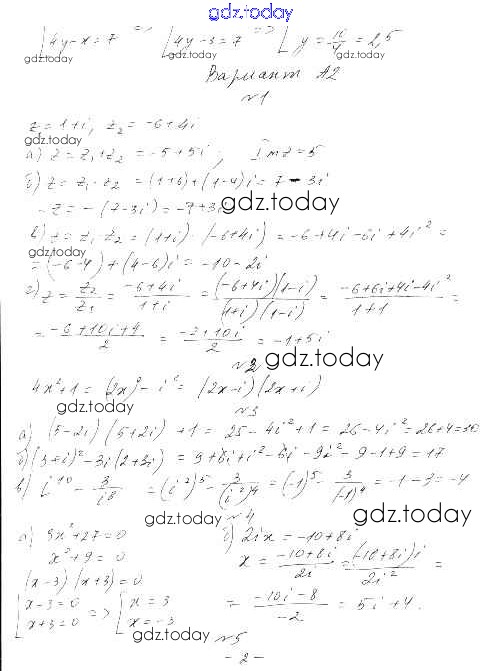 gdz.today
4y-x=7 => [4y-3=7 => [y=10/4=2,5
gdz.today gdz.today gdz.today
Вариант А2
№1
z=1+i, z₂=-6+4i
gdz.today gdz.today
а) z=z₁+z₂=-5+5i; Imz=5
б) z=z₁-z₂=(1+6)+(1-4)i=7-3i
-z=-(7-3i)=-7+3i gdz.today
в) z=z₁z₂=(1+i)·(-6+4i)=-6+4i-6i+4i²=
gdz.today
=(-6-4)+(4-6)i=-10-2i
г) z=z₂/z₁=(-6+4i)/(1+i)=(-6+4i)(1-i)/(1+i)(1-i)=(-6+6i+4i-4i²)/(1+1)=
=(-6+10i+4)/2=(-2+10i)/2=-1+5i
№2 gdz.today
4x²+1=(2x)²-i²=(2x-i)(2x+i)
gdz.today №3
а) (5-2i)(5+2i)+1=25-4i²+1=26-4i²=26+4=30
б) (3+i)²-3i(2+3i)=9+6i+i²-6i-9i²=9-1+9=17
в) i¹⁰-3/i⁸=(i²)⁵-3/(i²)⁴=(-1)⁵-3/(-1)⁴=-1-3=-4
gdz.today №4 gdz.today
а) 3x²+27=0 б) 2ix=-10+8i
x²+9=0 x=(-10+8i)/2i=(-10+8i)i/2i²=
(x-3)(x+3)=0
[x-3=0 => [x=3 =(-10i-8)/-2=5i+4.
x+3=0 x=-3
gdz.today №5
-2-